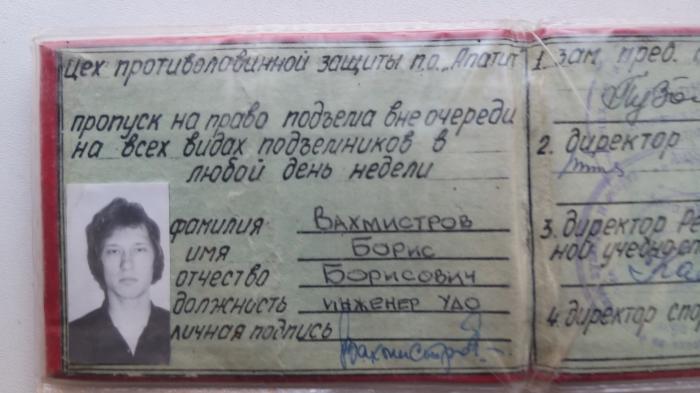 цех противолавинной защиты п.о. „Апатит"
пропуск на право подъема вне очереди
на всех видах подъемников в
любой день недели
фамилия Вахмистров
имя Борис
отчество Борисович
должность инженер УДО
личная подпись Вахмистров
1. зам. пред.
2. директор
3. директор
ной
4. директор